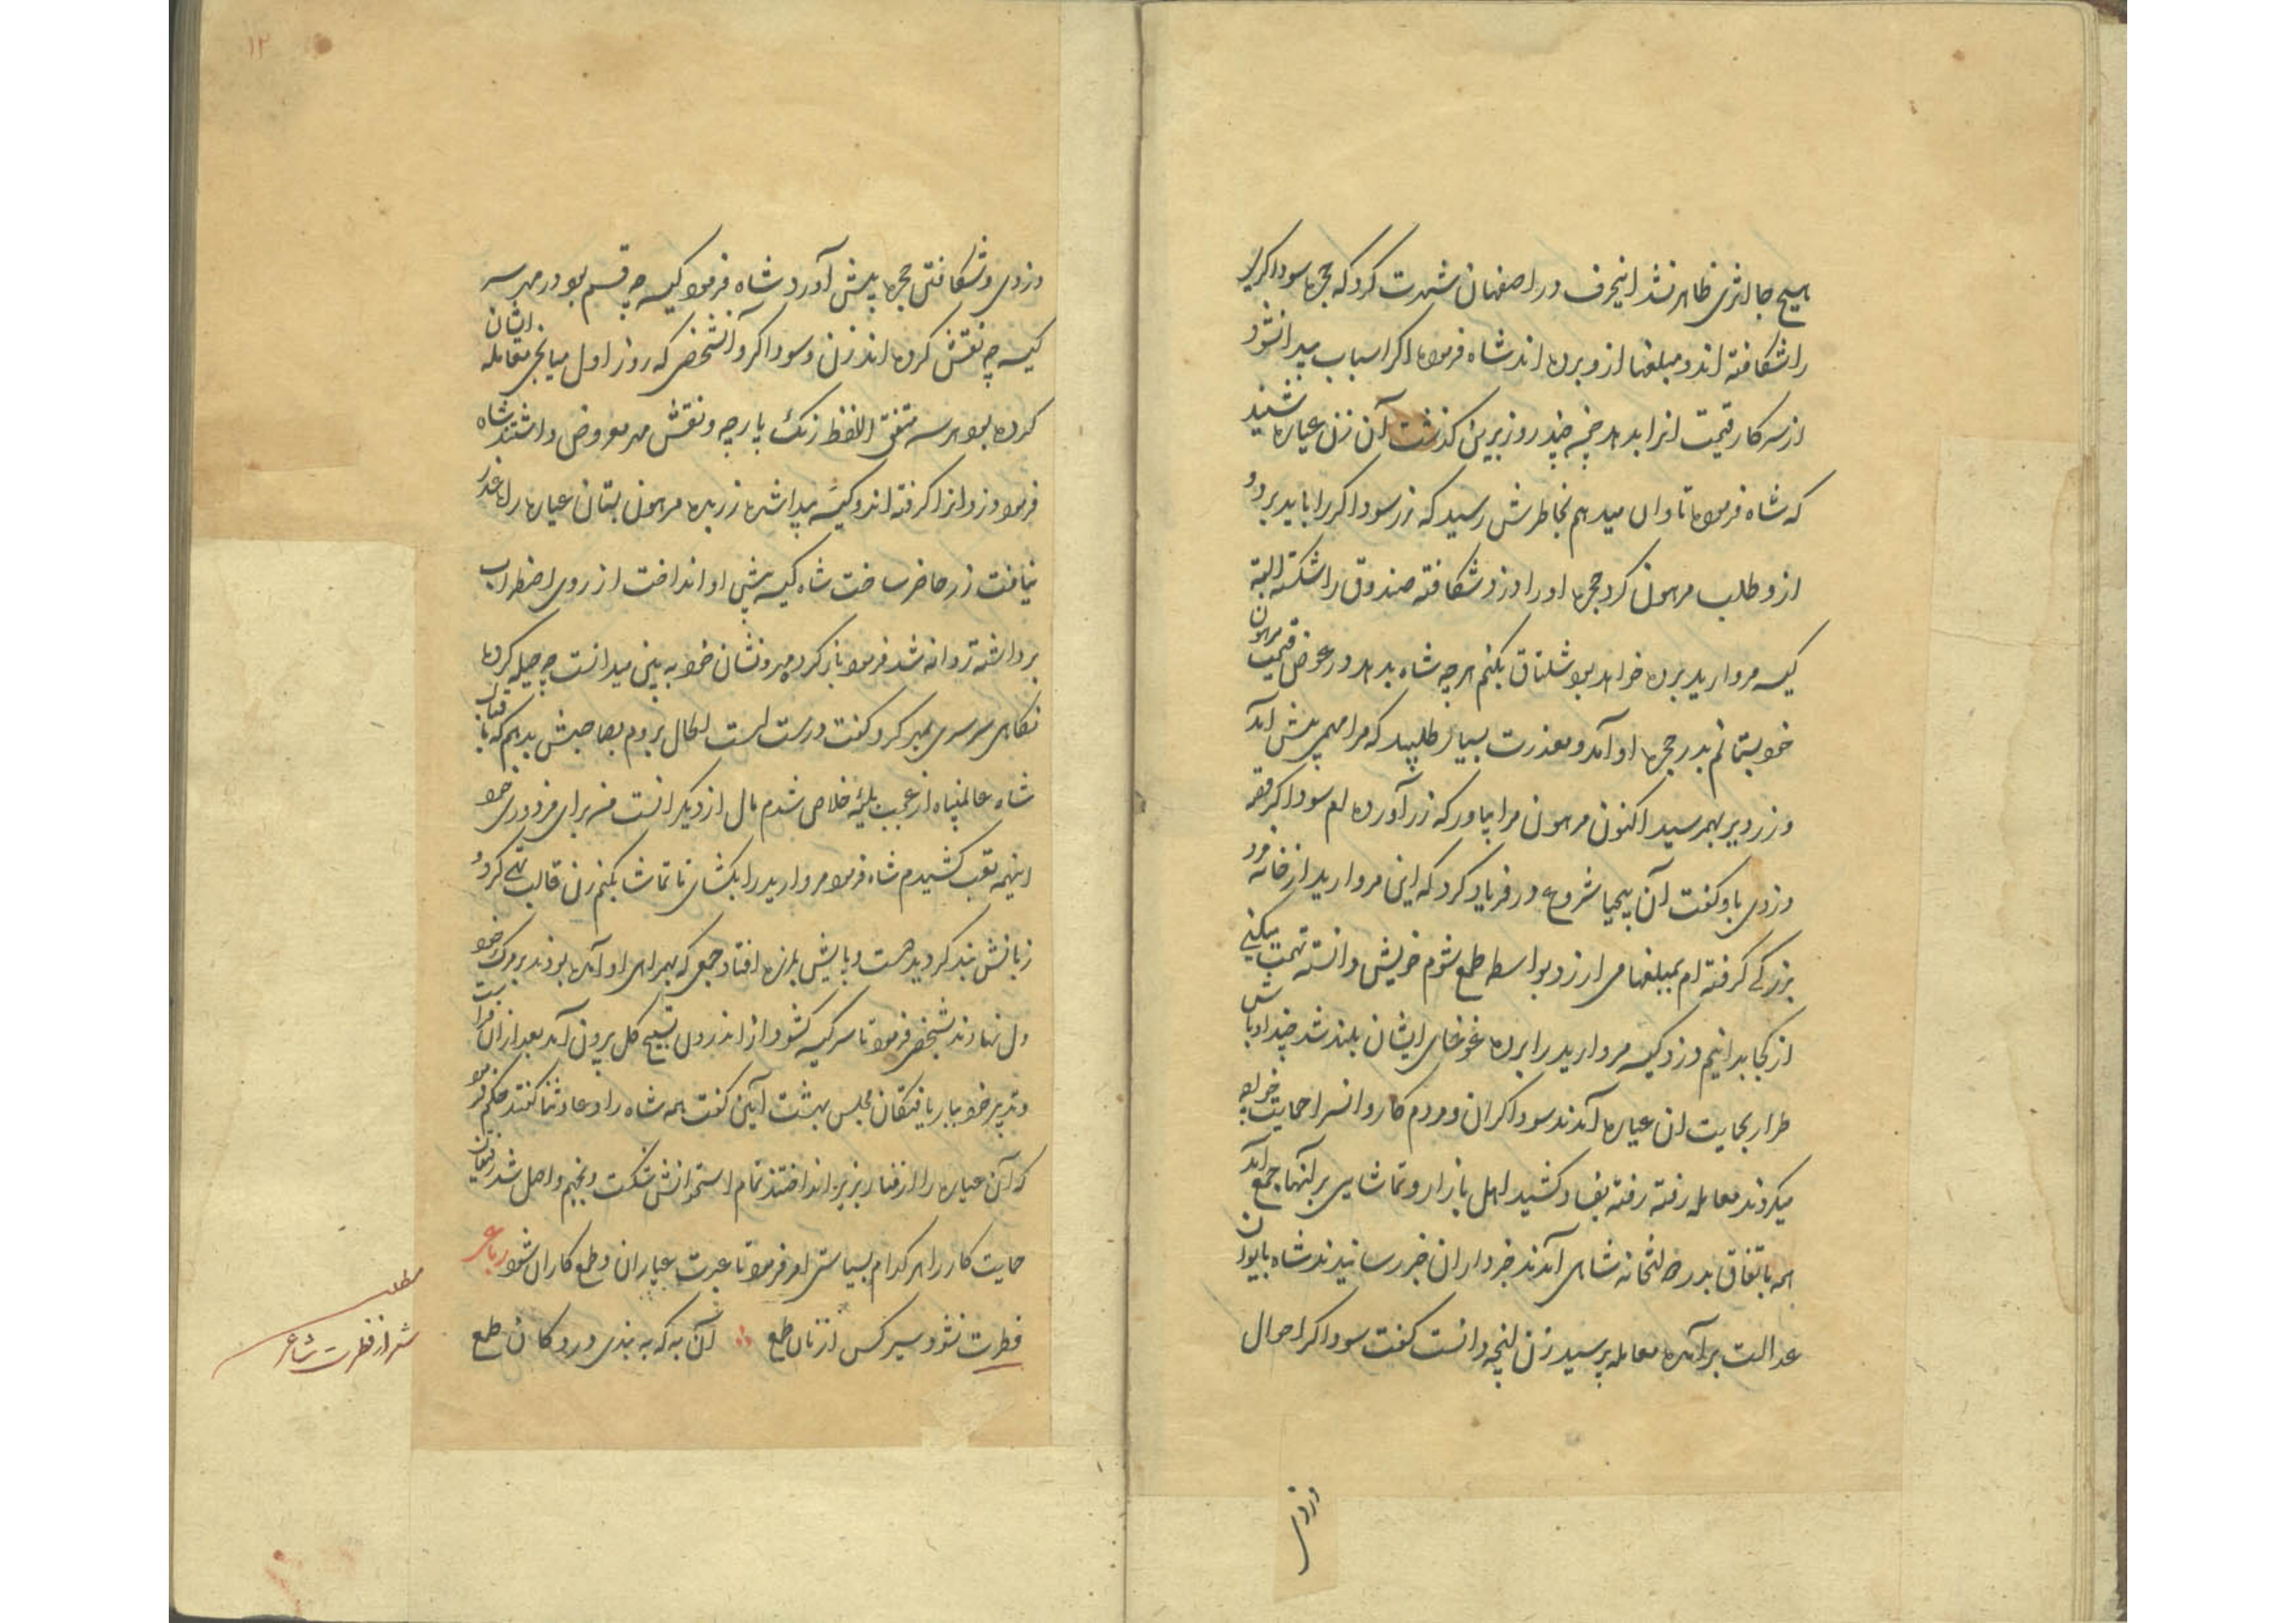 هیچ جا اثری ظاهر نشد اینحرف در اصفهان شهرت کرد که حجره سوداکری
را شکافته اند و مبلغها ازو برده اند شاه فرموده اکر اسباب پیدا نشود
از سرکار قیمت انرا بدهد چند روز برین کذشت آن زن عیاره شنید
که شاه فرموده تاوان میدهم بخاطرش رسید که زر سوداکر را باید برد و
ازو طلب مرهون کرد حجره او را دزد شکافته صندوق را شکسته البته
کیسه مروارید برده خواهد بود شلتاق بکنم هرچه شاه بدهد در عوض قیمت مرهون
خود بستانم بدر حجره او آمد و معذرت بسیار طلبید که مرا مهمی پیش آمد
و زر دیر بهمرسید اکنون مرهون مرا بیاور که زر آورده ام سوداکر قصه
دزدی باو کفت آن بیحیا شروع در فریاد کرد که این مروارید از خانه مرد
بزرکی کرفته ام بمبلغها می ارزد بواسطه طمع شوم خویش دانسته تهمت میکنی
از کجا بدانیم دزد کیسه مروارید را برده غوغای ایشان بلند شد چند اوباش
طرار بحمایت ان عیاره آمدند سوداکران و مردم کاروانسرا حمایت خواجه
میکردند معامله رفته رفته بفساد کشید اهل بازار و تماشایی بر آنها جمع آمد
همه باتفاق بدر دولتخانه شاهی آمدند خبرداران خبر رسانیدند شاه بایوان
عدالت برآمده معامله پرسید زن آنچه دانست کفت سوداکر احوال
دزدی
۱۲
دزدی و شکافتن حجره پیش آورد شاه فرمود کیسه چه قسم بود در مهر سر
کیسه چه نقش کرده اند زن و سوداکر و آنشخص که روز اول میانجی معامله ایشان
کرده بود هر سه متفق اللفظ رنک پارچه و نقش مهر معروض داشتند شاه
فرمود دزد انرا کرفته اند و کیسه پیدا شده زر بده مرهون بستان عیاره راه عذر
نیافت زر حاضر ساخت شاه کیسه پیش او انداخت از روی اضطراب
برداشته روانه شد فرمود باز کرد مهر و نشان خود به بین میدانست چه حیله کرده
نکاهی سرسری بمهر کرد و کفت درست است الحال بروم بصاحبش بدهم که باقبال
شاه عالمپناه از عجب بلیه خلاص شدم مال از دیکرانست من برای مزدوری خود
اینهمه تعب کشیدم شاه فرمود مروارید را بکشای تا تماشا بکنم زن قالب تهی کرد و
زبانش بند کردید دست و پایش بلرزه افتاد جمعی که بهمراهی او آمده بودند بر مرک خود
دل نهادند بشخصی فرمود تا سر کیسه کشود از اندرون تسبیح کل برون آمد بعد ازان
و تدبیر خود بباریافتکان مجلس بهشت آیین کفت همه شاه را دعا و ثنا کفتند حکم فرمود
که آن عیاره را از منار بزیر انداختند تمام استخوانش شکست و بجهنم واصل شد رفیقان
حمایت کار را هر کدام بسیاستی امر فرمود تا عبرت عیاران و طمع کاران شود رباعی
فطرت نشود سیر کس از نان طمع ∴ آن به که به بندی در دکان طمع
مطلب
شعر از فطرت شاعر